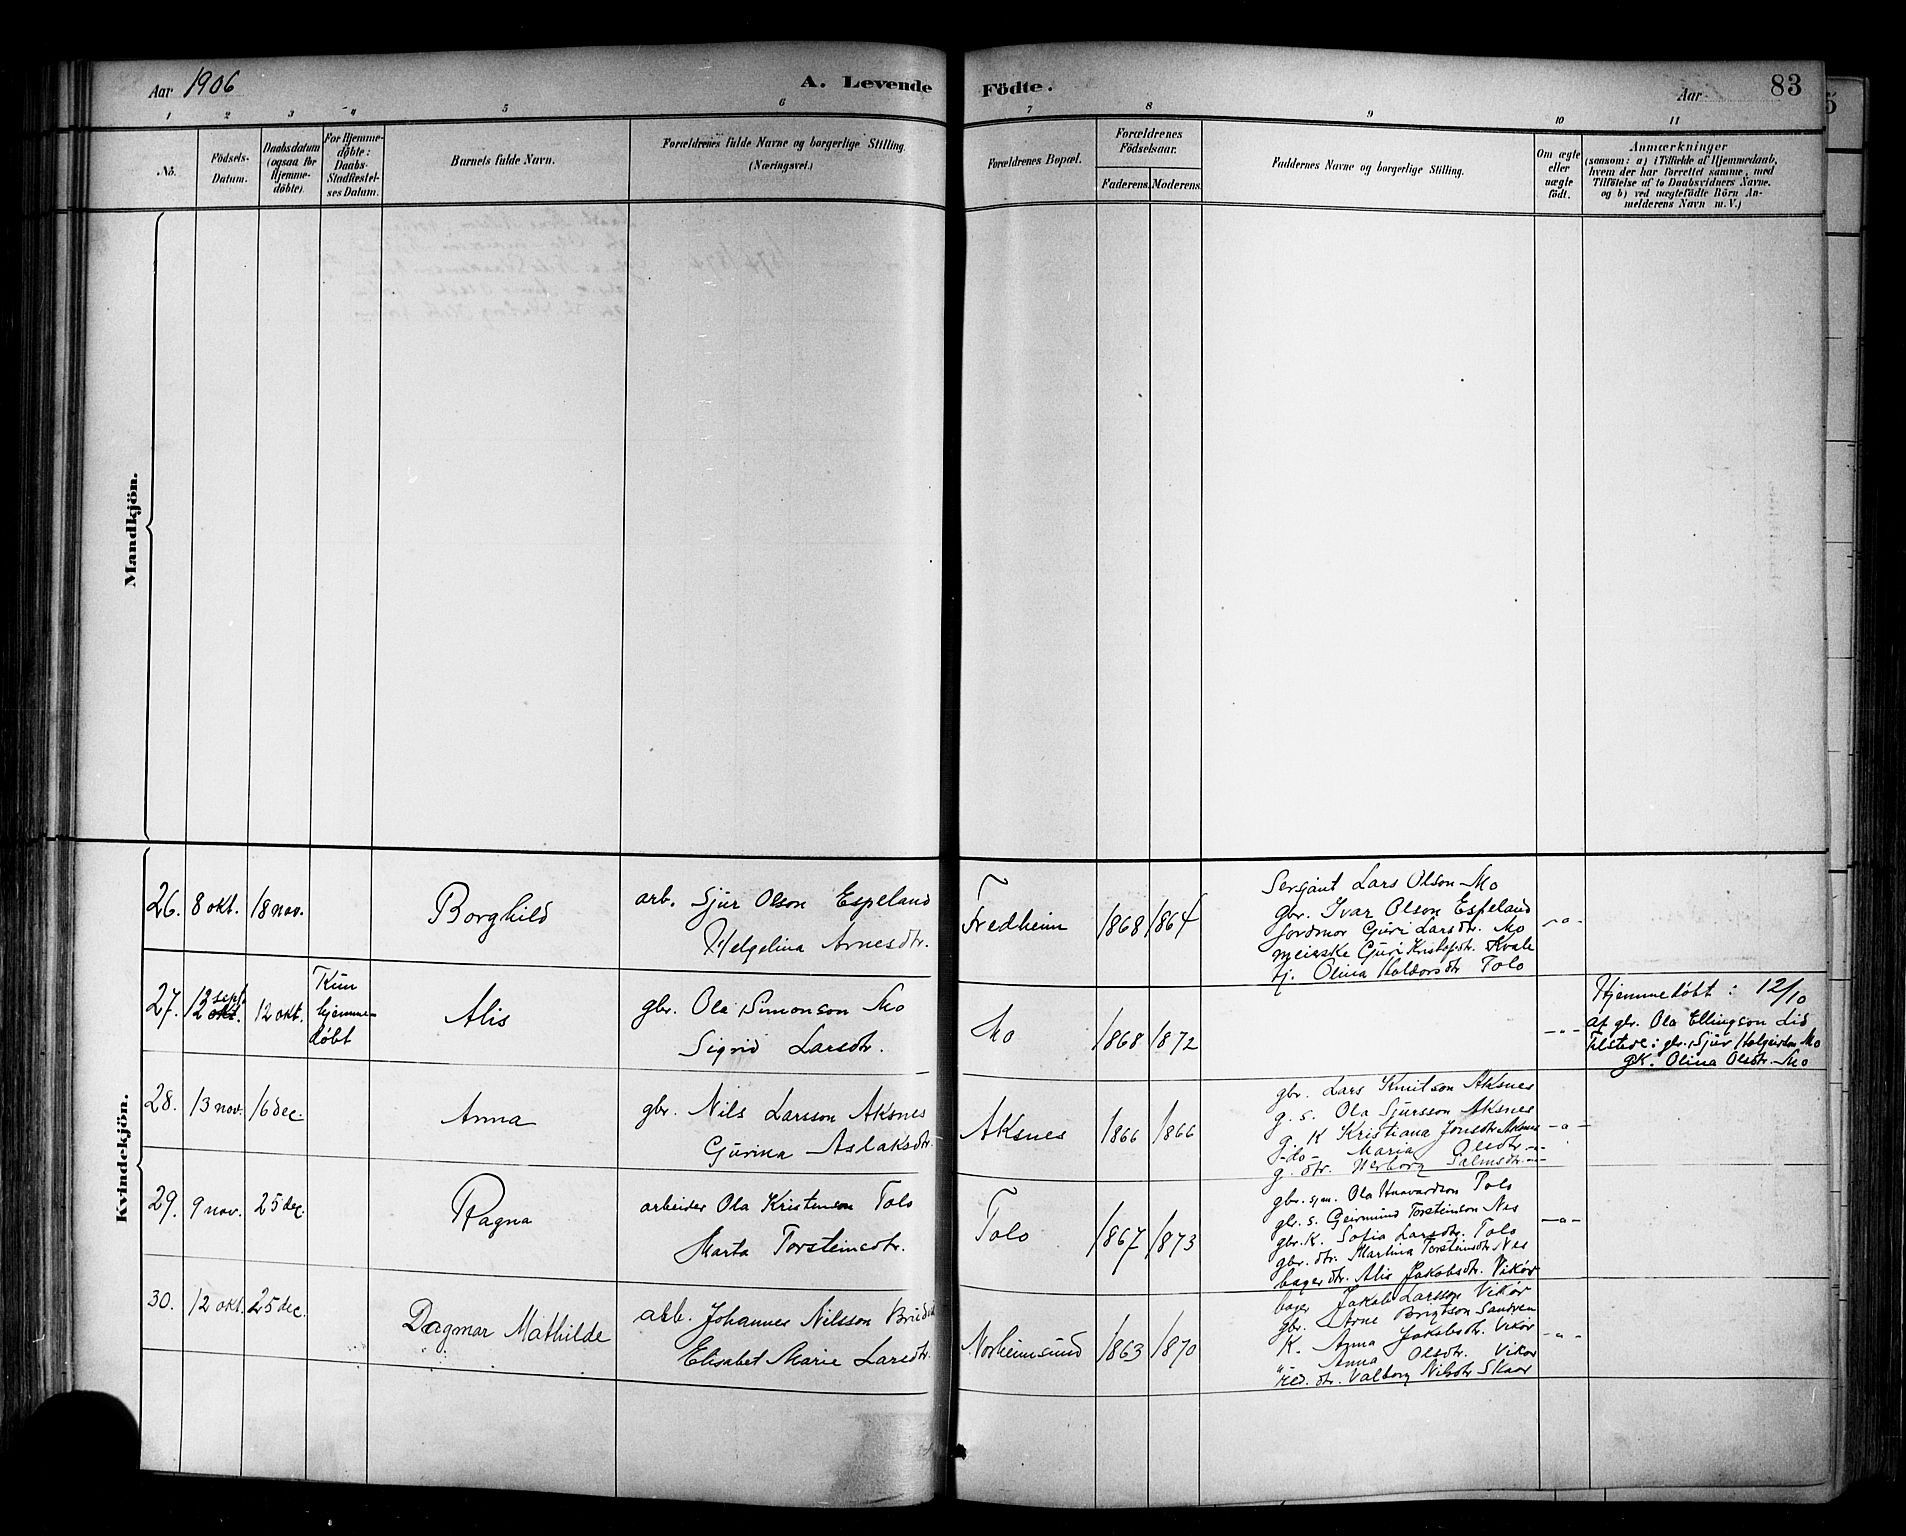 Aar 1906
A. Levende Födte.
Aar
83
1 2 3 4 5 6 7 8 9 10 11
No.
Födsels-Datum.
Daabsdatum (ogsaa for Hjemme-döbte).
For Hjemme-døbte: Daabs-Stadfæstel-ses Datum.
Barnets fulde Navn.
Forældrenes fulde Navne og borgerlige Stilling. (Næringsvei.)
Forældrenes Bopæl.
Forældrenes Födselsaar.
Faderens. Moderens.
Faddernes Navne og borgerlige Stilling.
Om ægte eller uægte födt.
Anmærkninger
(saasom: a) i Tilfælde af Hjemmedaab,
hvem der har forrettet samme, med
Tilföielse af to Daabsvidners Navne,
og b) ved uægtefödte Börn An-
melderens Navn m. V.)
Mandkjön.
Kvindekjön.
26. 8 okt. 18 nov. Borghild
arb. Sjur Olson Espeland
Helgelina Arnesdtr.
Fredheim 1868 1864
Sergant Lars Olson Mo
gbr. Ivar Olson Espeland
jordmor Guri Larsdtr. Mo
meierske Guri Kristofsdtr. Kvale
tj. Olina Haldorsdtr Tolo
-"-
27. 12 okt. sept. 12 okt.
Kun
hjemme-
døbt
Alis
gbr. Ola Simonson Mo
Sigrid Larsdtr.
Mo 1868 1872
-"-
Hjemmedøbt: 12/10
af gbr. Ola Ellingson Lid
Tilstede: gbr. Sjur Mo
gk. Olina Olsdtr. Mo
28. 13 nov. 16 dec. Anna
gbr. Nils Larsson Aksnes
Gurina Aslaksdtr.
Aksnes 1866 1866
gbr. Lars Knutson Aksnes
g. s. Ola Sjursson Aksnes
g. K Kristiana Jonsdtr Aksnes
g-do- Maria Olsdtr -"-
g. dtr. Herborg Salmsdtr. -"-
-"-
29. 9 nov. 25 dec. Ragna
arbeider Ola Kristenson Tolo
Marta Torsteinsdtr.
Tolo 1867 1873
gbr. sjm. Ola Haavardson Tolo
gbr. s. Geirmund Torsteinson Nes
gbr. K. Sofia Larsdtr. Tolo
gbr. dtr. Martina Torsteinsdtr Nes
bager dtr. Alis Jakobsdtr. Vikør
-"-
30. 12 okt. 25 dec. Dagmar Mathilde
arb. Johannes Nilsson
Elisabet Marie Larsdtr.
Norheimsund 1863 1870
bager Jakob Larsson Vikør
gbr. Arne Brigtson Sandven
K. Anna Jakobsdtr. Vikør
" Anna Olsdtr. Vikør
red. dtr. Valborg Nilsdtr Skaar
-"-